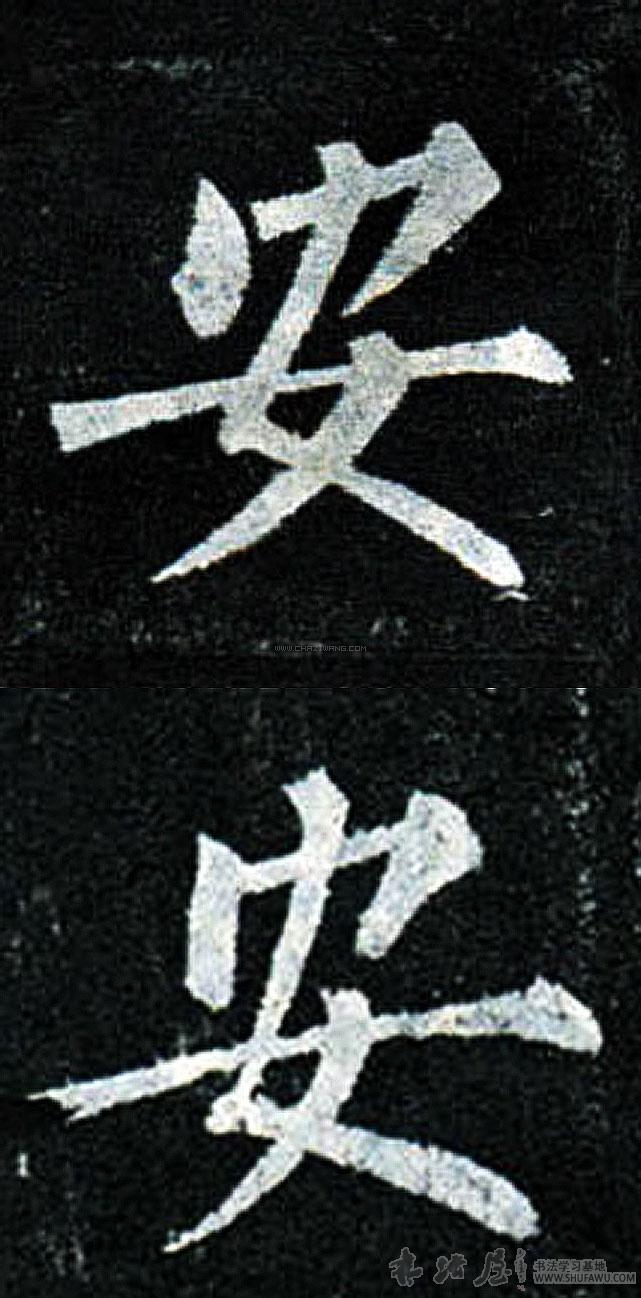 安
WWW.CHAZIWANG.COM
安
书法屋 书法学习基地
WWW.SHUFAWU.COM